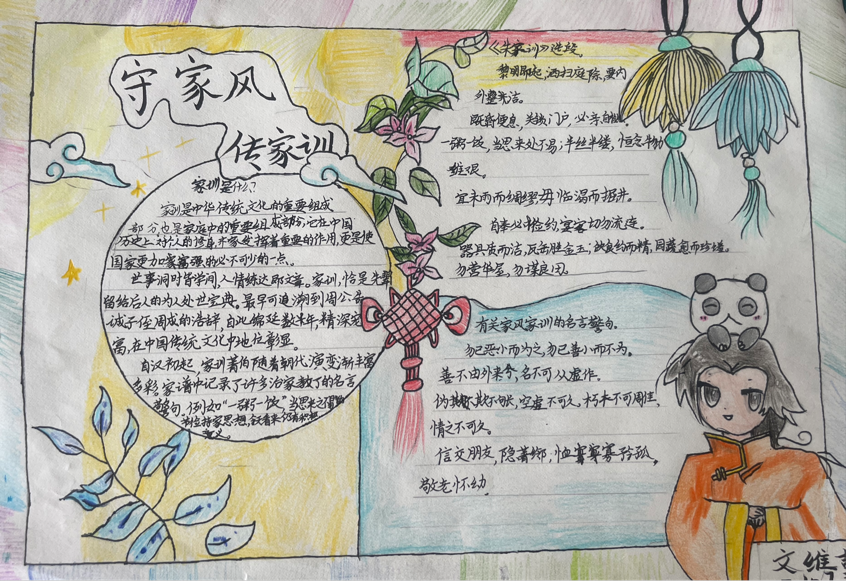 守家风
传家训
家训是什么?
家训是中华传统文化的重要组成
部分,也是家庭中的重要组成部分,它在中国
历史上对个人的修身齐家发挥着重要的作用,更是使
国家更加富强的必不可少的一点。
世事洞时皆学问,人情练达即文章。家训,恰是先辈
留给后人的为人处世宝典。最早可追溯到周公
诫子侄周成的诰辞,自此绵延数千年,精深宏
富,在中国传统文化中地位彰显。
自汉初起,家训著作随着朝代演变渐丰富
多彩家谱中记录了许多治家教子的名言
警句,例如“一粥一饭”当思来之不
持家思想,
《朱家训》选段
黎明即起,洒扫庭除,要内
外整洁。
既昏便息,关锁门户,必亲自
一粥一饭,当思来处不易;半丝半缕,恒念物力
维艰。
宜未雨而绸缪,毋临渴而掘井。
自奉必俭约,宴客切勿流连。
器具质而洁,瓦缶胜金玉;饮食约而精,园蔬愈珍馐。
勿营华屋,勿谋良田。
有关家风家训的名言警句。
勿以恶小而为之,勿以善小而不为。
善不由外来兮,名不可以虚作。
伪欺不可长,空虚不可久,朽木不可雕住,
情之不可久。
信交朋友,隐著乡,恤寡孤,
敬老怀幼
文维